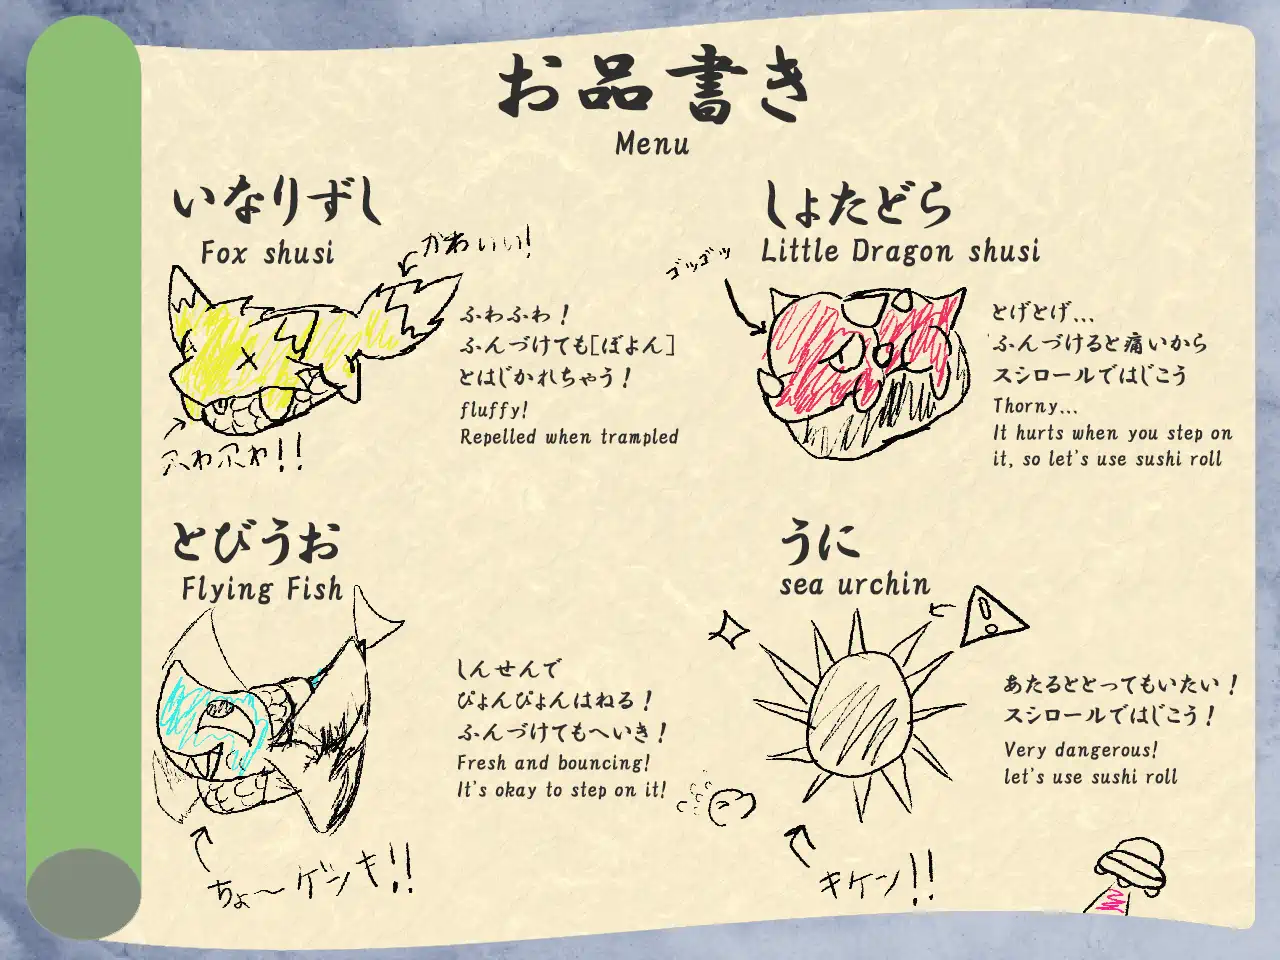 お品書き
Menu
いなりずし
Fox shusi
かわいい!
ふわふわ!
ふんづけても[ぼよん]
とはじかれちゃう!
fluffy!
Repelled when trampled
ふわふわ!!
しょたどら
Little Dragon shusi
ゴツゴツ
とげとげ...
ふんづけると痛いから
スシロールではじこう
Thorny...
It hurts when you step on
it, so let's use sushi roll
とびうお
Flying Fish
しんせんで
ぴょんぴょんはねる!
ふんづけてもへいき!
Fresh and bouncing!
It's okay to step on it!
ちょ〜ゲンキ!!
うに
sea urchin
あたるととってもいたい!
スシロールではじこう!
Very dangerous!
let's use sushi roll
キケン!!